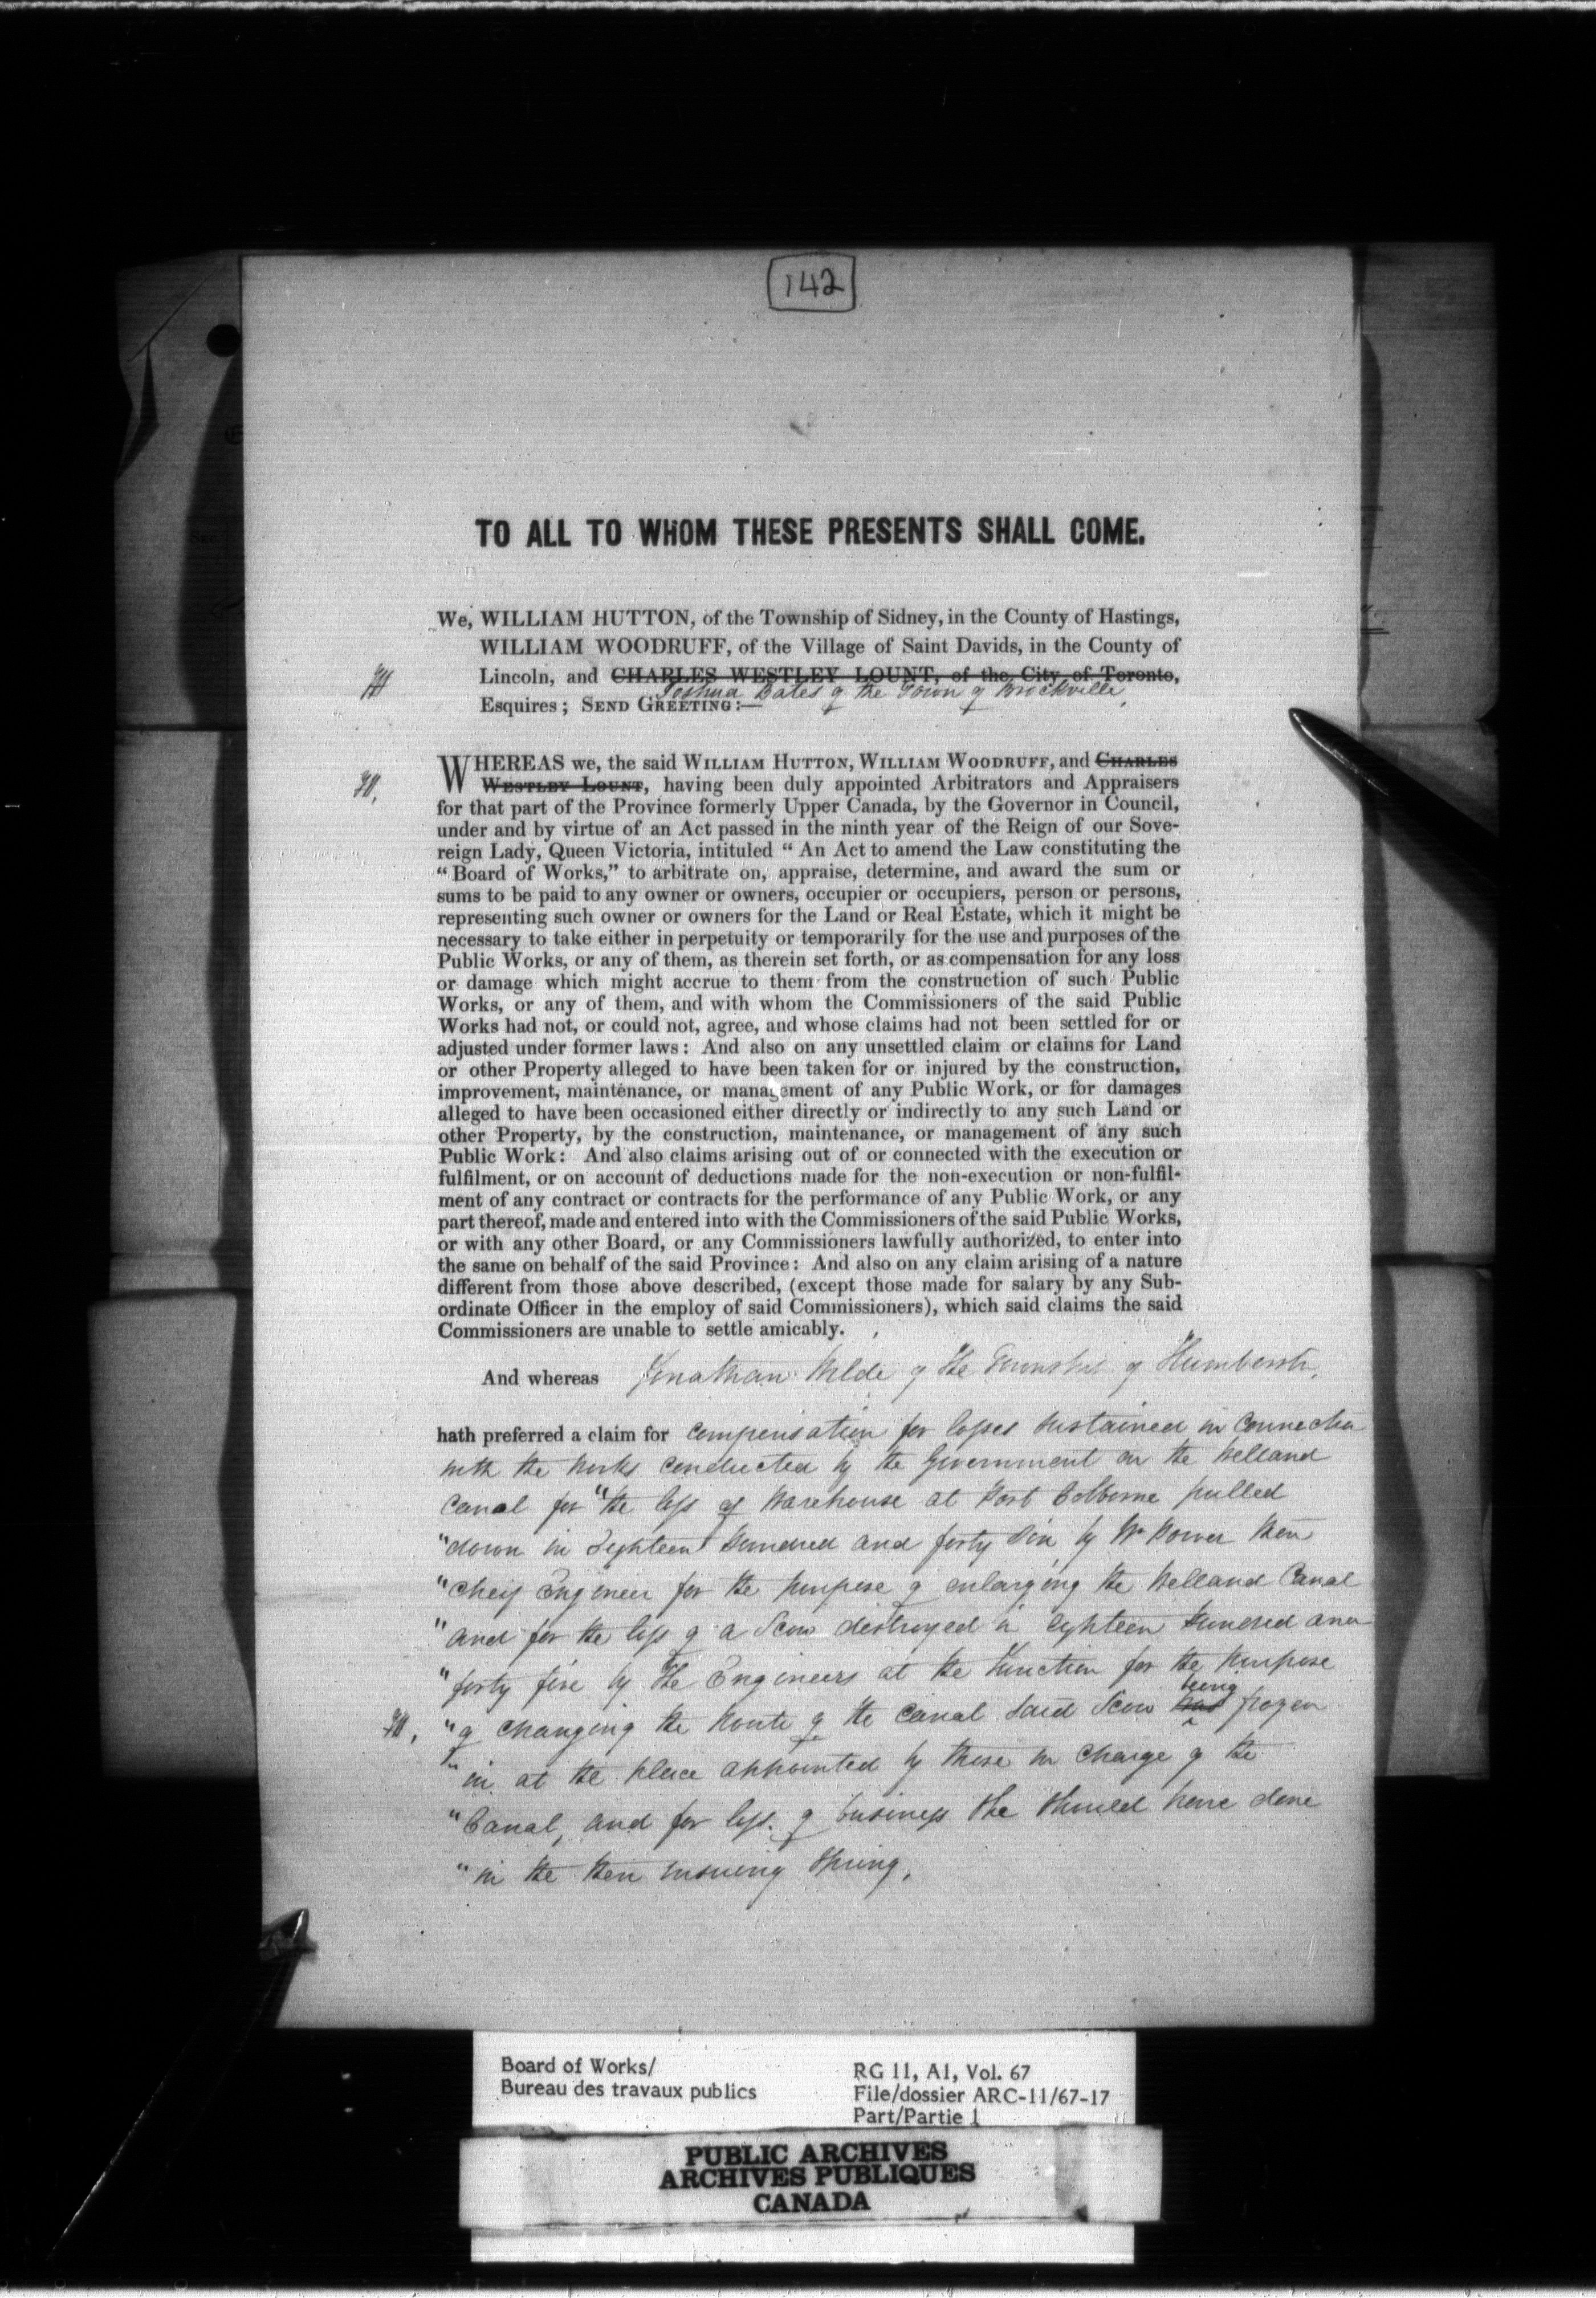 142
TO ALL TO WHOM THESE PRESENTS SHALL COME.
We, WILLIAM HUTTON, of the Township of Sidney, in the County of Hastings,
WILLIAM WOODRUFF, of the Village of Saint Davids, in the County of
Lincoln, and CHARLES WESTLEY LOUNT, of the City of Toronto,
Joshua Bates of the Town of Brockville,
Esquires; SEND GREETING:—
WHEREAS we, the said WILLIAM HUTTON, WILLIAM WOODRUFF, and CHARLES
WESTLEY LOUNT, having been duly appointed Arbitrators and Appraisers
for that part of the Province formerly Upper Canada, by the Governor in Council,
under and by virtue of an Act passed in the ninth year of the Reign of our Sove-
reign Lady, Queen Victoria, intituled “ An Act to amend the Law constituting the
“ Board of Works,” to arbitrate on, appraise, determine, and award the sum or
sums to be paid to any owner or owners, occupier or occupiers, person or persons,
representing such owner or owners for the Land or Real Estate, which it might be
necessary to take either in perpetuity or temporarily for the use and purposes of the
Public Works, or any of them, as therein set forth, or as compensation for any loss
or damage which might accrue to them from the construction of such Public
Works, or any of them, and with whom the Commissioners of the said Public
Works had not, or could not, agree, and whose claims had not been settled for or
adjusted under former laws: And also on any unsettled claim or claims for Land
or other Property alleged to have been taken for or injured by the construction,
improvement, maintenance, or management of any Public Work, or for damages
alleged to have been occasioned either directly or indirectly to any such Land or
other Property, by the construction, maintenance, or management of any such
Public Work: And also claims arising out of or connected with the execution or
fulfilment, or on account of deductions made for the non-execution or non-fulfil-
ment of any contract or contracts for the performance of any Public Work, or any
part thereof, made and entered into with the Commissioners of the said Public Works,
or with any other Board, or any Commissioners lawfully authorized, to enter into
the same on behalf of the said Province: And also on any claim arising of a nature
different from those above described, (except those made for salary by any Sub-
ordinate Officer in the employ of said Commissioners), which said claims the said
Commissioners are unable to settle amicably.
And whereas Jonathan Wilde of the Township of
hath preferred a claim for compensation for losses sustained in connection
with the works conducted by the Government on the Welland
Canal for "the loss of Warehouse at Port Colborne pulled
"down in Eighteen hundred and forty six by Mr Power then
"Cheif Engineer for the purpose of enlarging the Welland Canal
"and for the loss of a Scow destroyed in Eighteen hundred and
"forty five by the Engineers at the Junction for the purpose
being
"of changing the route of the Canal said Scow was frozen
"in at the place appointed by those in charge of the
"Canal, and for loss of business she should have done
"in the then ensuing Spring.
Board of Works/
Bureau des travaux publics
RG 11, A1, Vol. 67
File/dossier ARC-11/67-17
Part/Partie 1
PUBLIC ARCHIVES
ARCHIVES PUBLIQUES
CANADA